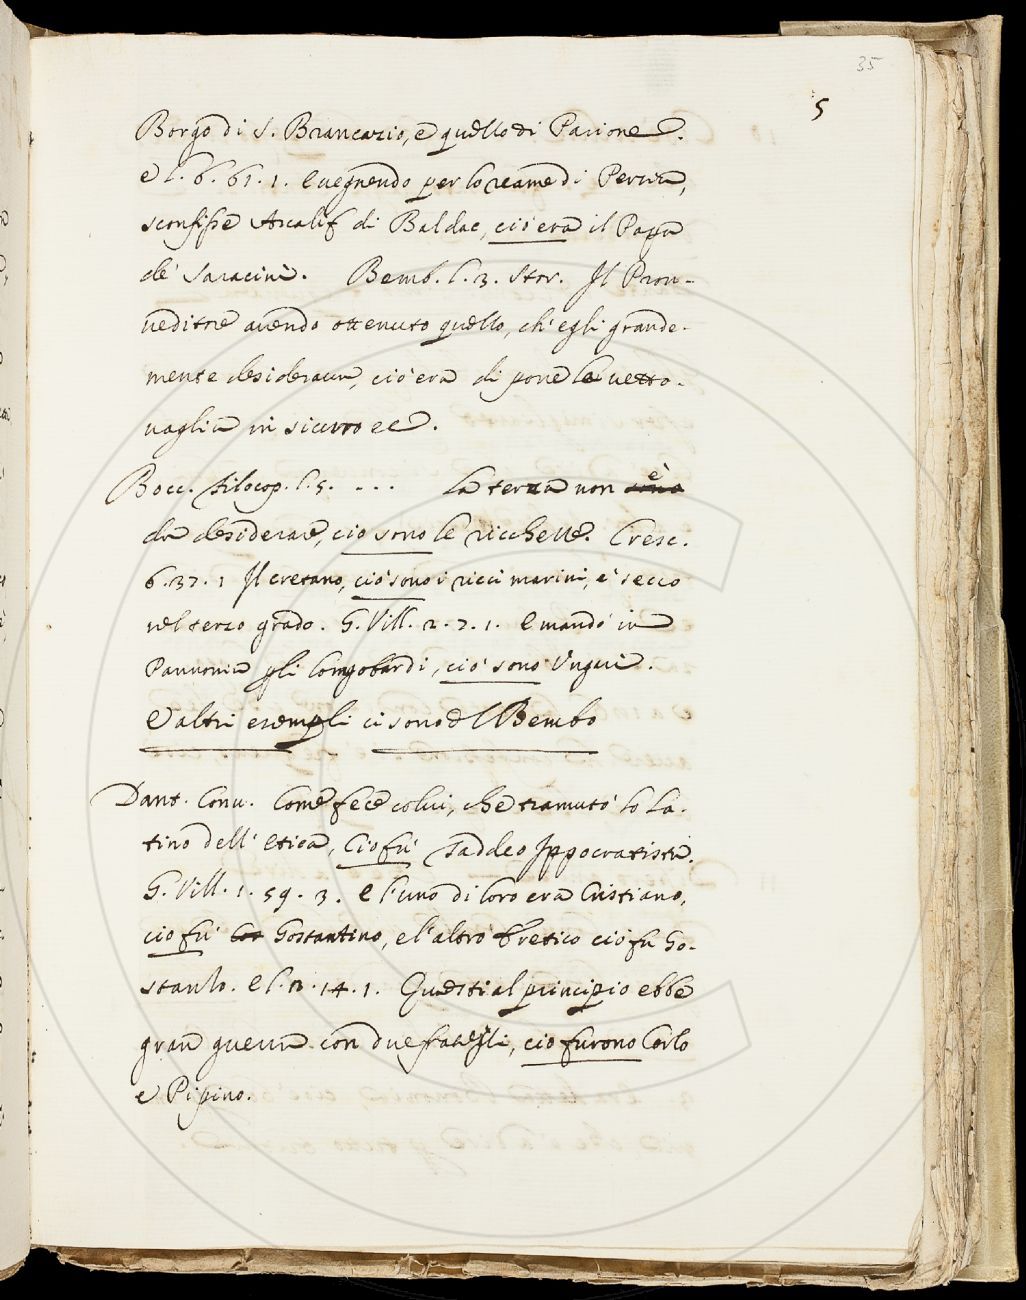 35
5
Borgo di S. Brancazio, e quello di Parione.
e l. 6. 61. 1. e vegnendo per lo reame di Persia,
sconfisse Arcalif di Baldac, ciò era il Papa
de' Saracini. Bemb. l. 3. Stor. Il Prov-
veditore avendo ottenuto quello, ch'egli grande-
mente desiderava, ciò era di porre le vetto-
vaglie in sicuro ec.
Bocc. Filocop. l. 5. . . . La terza non è
da desiderare, cio sono le ricchezze. Cresc.
6. 37. 1 Il cretano, ciò sono i ricci marini, è secco
nel terzo grado. G. Vill. 2. 7. 1. E mandò in
Pannonia gli Longobardi, ciò sono Ungari.
E altri esempli ci sono del Bembo
Dant. Conv. Come fece colui, che tramutò lo La-
tino dell'Etica, Ciò fu Taddeo Ippocratista.
G. Vill. 1. 59. 3. E l'uno di loro era Cristiano,
cio fu Gostantino, e l'altro Eretico ciò fu Go-
stanzo. E l. 2. 14. 1. Questi al principio ebbe
gran guerra con due fratelli, cio furono Carlo
e Pipino.